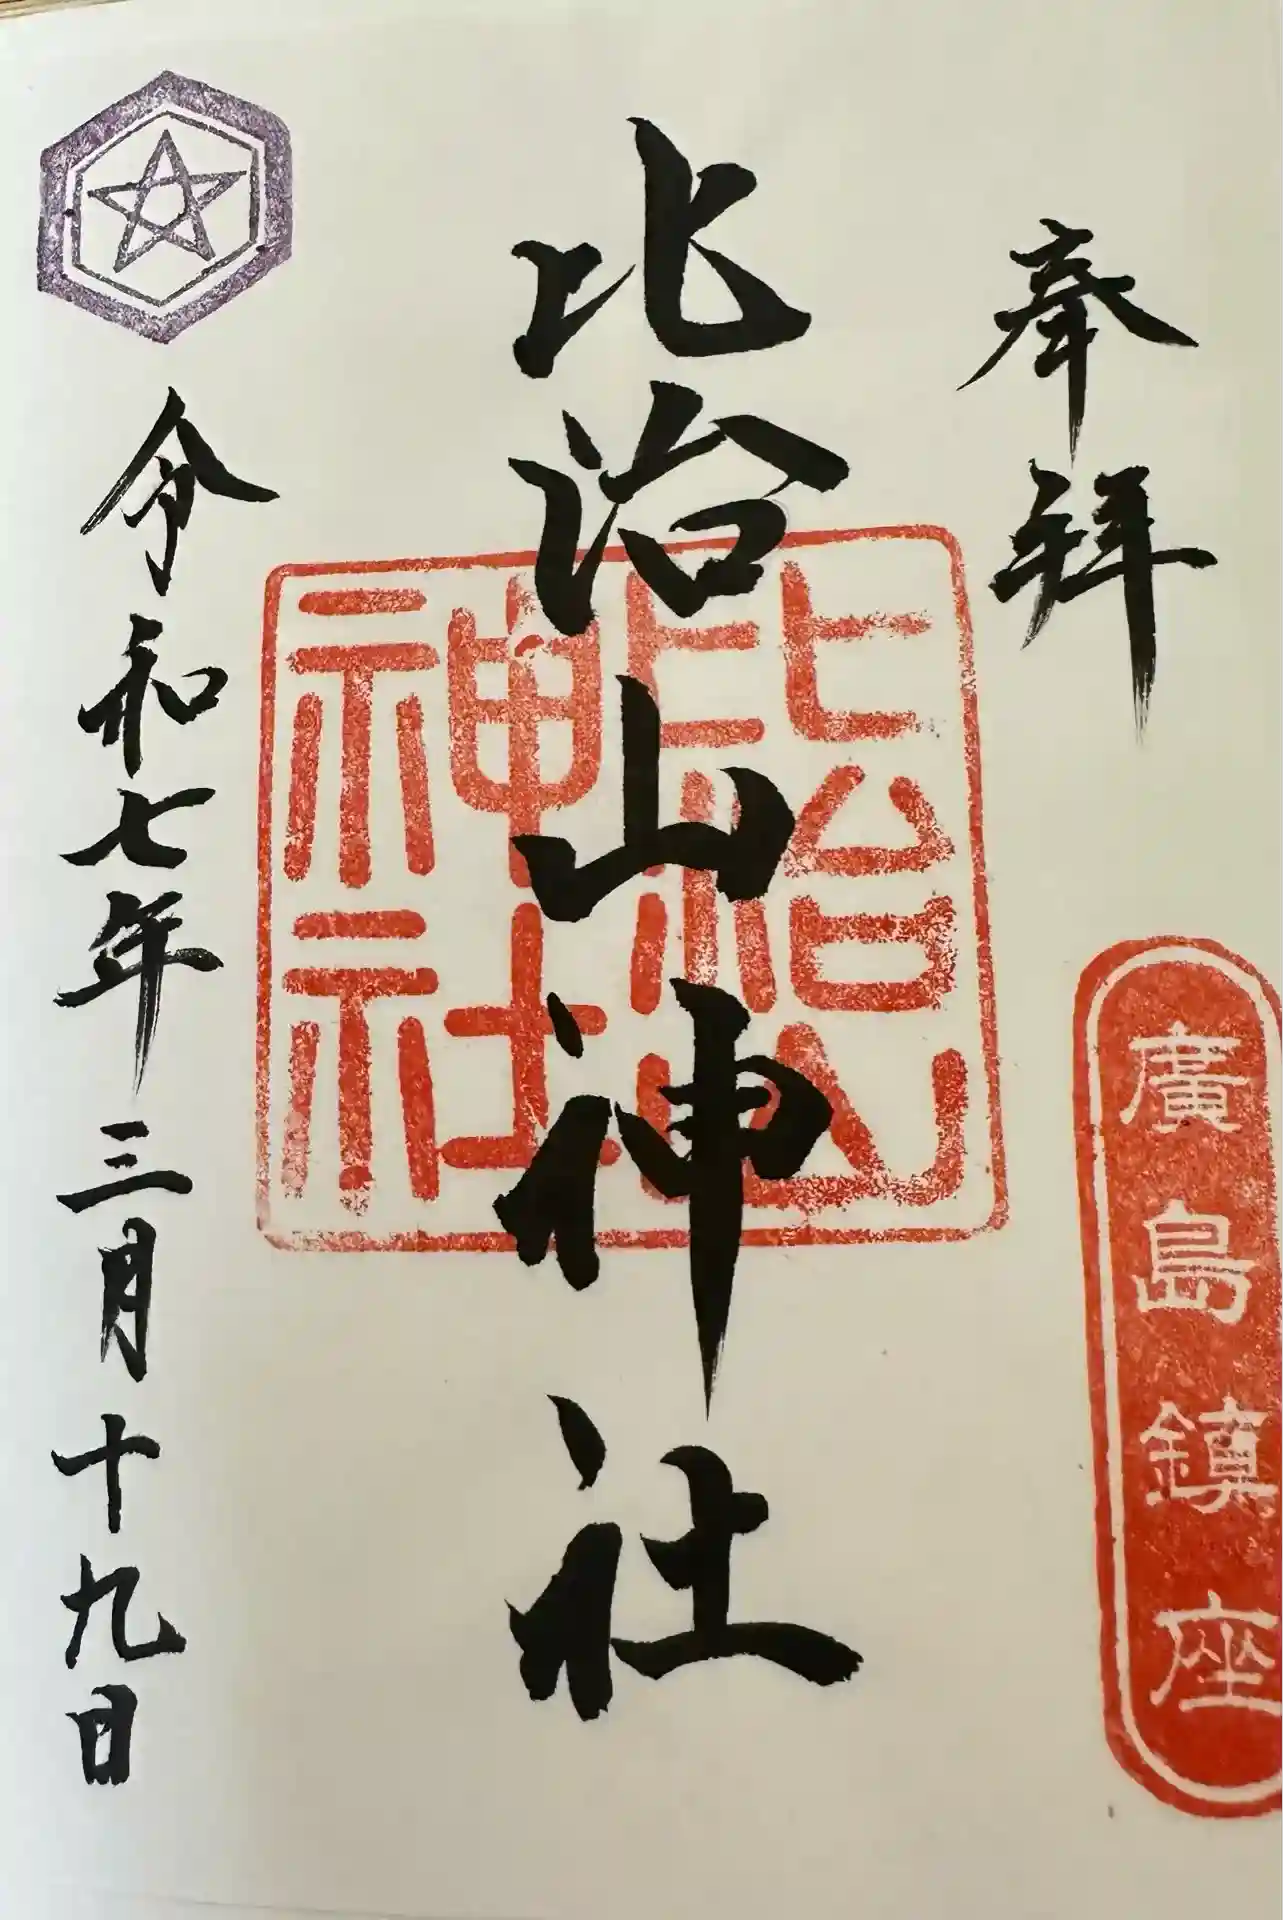 奉拜
廣島鎮座
比治山神社
比治山
神社
令和七年三月十九日